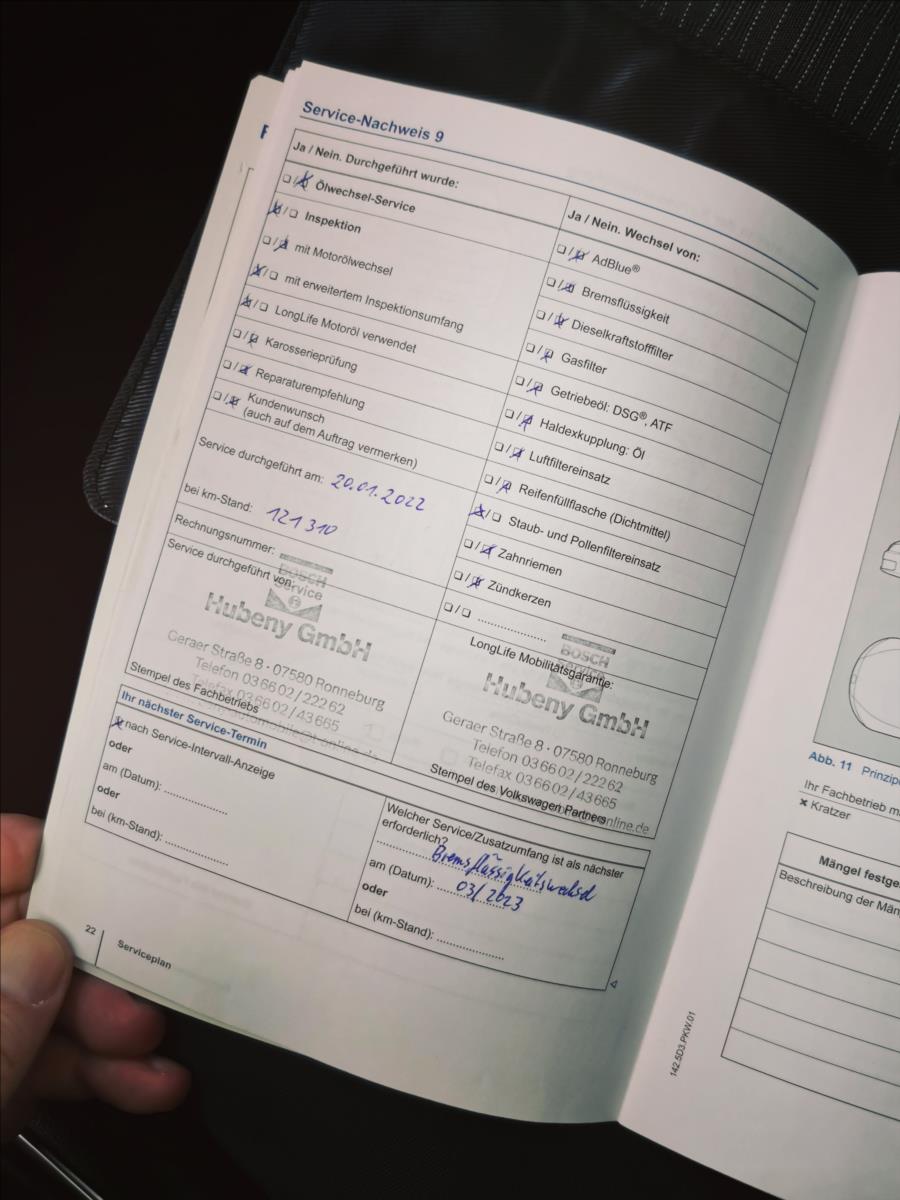 Service-Nachweis 9
Ja / Nein. Durchgeführt wurde:
Ölwechsel-Service
Inspektion
mit Motorölwechsel
mit erweitertem Inspektionsumfang
LongLife Motoröl verwendet
Karosserieprüfung
Reparaturempfehlung
Kundenwunsch
(auch auf dem Auftrag vermerken)
Service durchgeführt am: 20.01.2022
bei km-Stand: 121 310
Rechnungsnummer:
Service durchgeführt von:
BOSCH
Service
Hubeny GmbH
Geraer Straße 8 · 07580 Ronneburg
Telefon 03 66 02 / 222 62
Telefax 03 66 02 / 43 665
Stempel des Fachbetriebs
Ja / Nein. Wechsel von:
AdBlue®
Bremsflüssigkeit
Dieselkraftstofffilter
Gasfilter
Getriebeöl: DSG®, ATF
Haldexkupplung: Öl
Luftfiltereinsatz
Reifenfüllflasche (Dichtmittel)
Staub- und Pollenfiltereinsatz
Zahnriemen
Zündkerzen
LongLife Mobilitätsgarantie:
BOSCH
Service
Hubeny GmbH
Geraer Straße 8 · 07580 Ronneburg
Telefon 03 66 02 / 222 62
Telefax 03 66 02 / 43 665
Stempel des Volkswagen Partners
Ihr nächster Service-Termin
nach Service-Intervall-Anzeige
oder
am (Datum):
oder
bei (km-Stand):
Welcher Service/Zusatzumfang ist als nächster
erforderlich?
Bremsflüssigkeitswechsel
am (Datum): 03/2023
oder
bei (km-Stand):
22
Serviceplan
Abb. 11 Prinzip
Ihr Fachbetrieb
Kratzer
Mängel
Beschreibung der
142.5D3.PKW.01